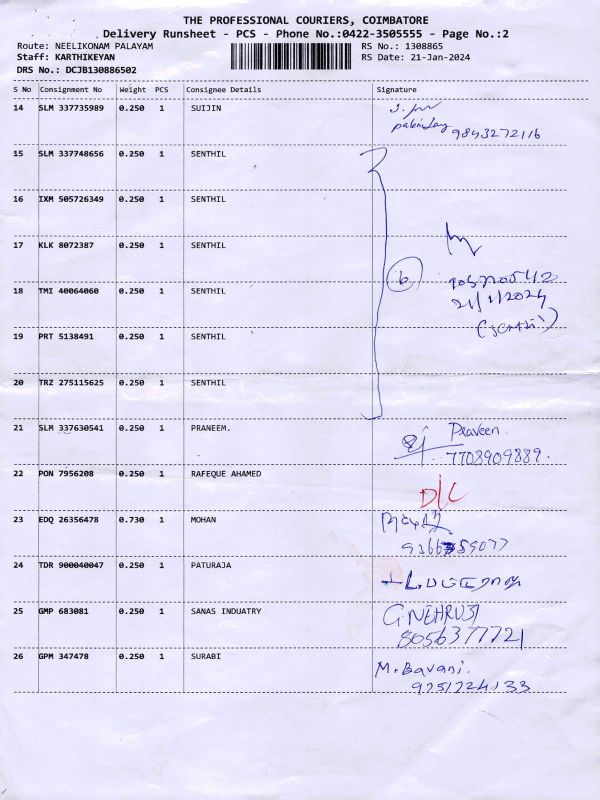 THE PROFESSIONAL COURIERS, COIMBATORE
Delivery Runsheet - PCS - Phone No.:0422-3505555 - Page No.:2
Route: NEELIKONAM PALAYAM
RS No.: 1308865
Staff: KARTHIKEYAN
RS Date: 21-Jan-2024
DRS No.: DCJB130886502
S No Consignment No Weight PCS Consignee Details Signature
14 SLM 337735989 0.250 1 SUIJIN
9843272116
15 SLM 337748656 0.250 1 SENTHIL
16 IXM 505726349 0.250 1 SENTHIL
17 KLK 8072387 0.250 1 SENTHIL
6
21/1/2024
18 TMI 40064060 0.250 1 SENTHIL
19 PRT 5138491 0.250 1 SENTHIL
20 TRZ 275115625 0.250 1 SENTHIL
21 SLM 337630541 0.250 1 PRANEEM. Praveen.
7708909889.
22 PON 7956208 0.250 1 RAFEQUE AHAMED
D/C
23 EDQ 26356478 0.730 1 MOHAN
24 TDR 900040047 0.250 1 PATURAJA
25 GMP 683081 0.250 1 SANAS INDUATRY G.NEHRUJI
8056377721
26 GPM 347478 0.250 1 SURABI M. Bavani.